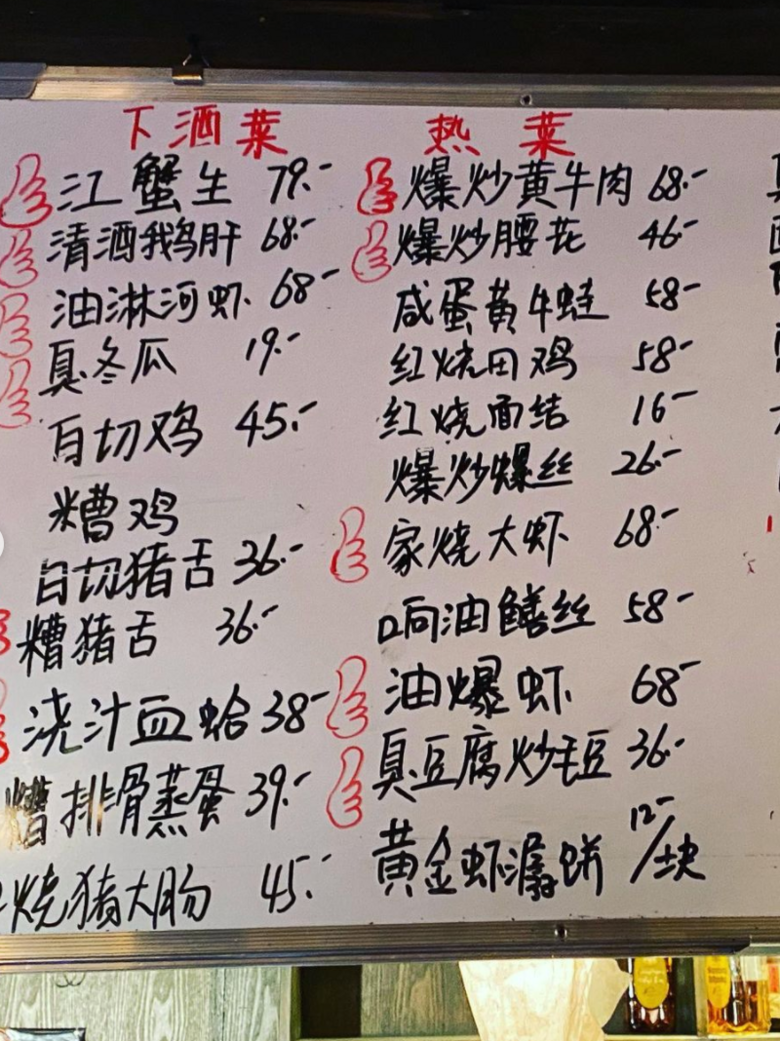 下酒菜
江蟹生 79.-
清酒鹅肝 68.-
油淋河虾 68-
臭冬瓜 19.-
白切鸡 45.-
糟鸡
白切猪舌 36.-
糟猪舌 36.-
浇汁血蛤 38-
糟排骨蒸蛋 39.-
烧猪大肠 45.-
热菜
爆炒黄牛肉 68.-
爆炒腰花 46-
咸蛋黄牛蛙 58-
红烧田鸡 58-
红烧面结 16-
爆炒螺丝 26.-
家烧大虾 68-
响油鳝丝 58-
油爆虾 68-
臭豆腐炒毛豆 36.-
黄金虾潺饼 12-/块